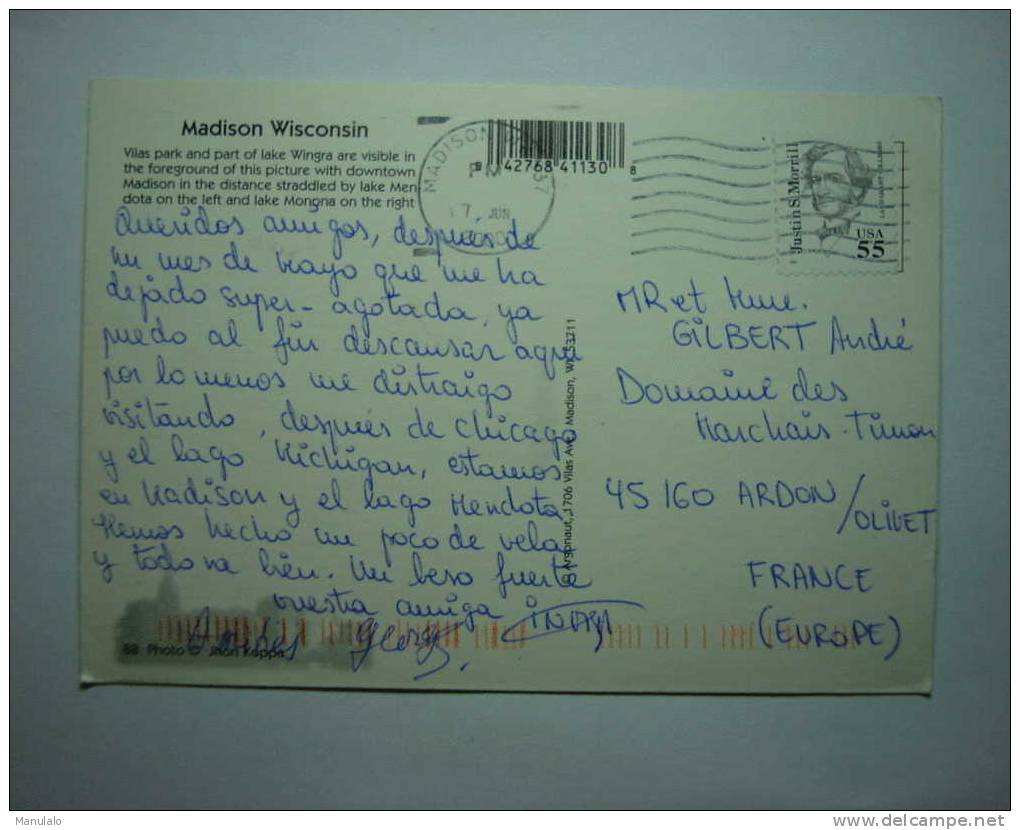 Madison Wisconsin
Vilas park and part of lake Wingra are visible in
the foreground of this picture with downtown
Madison in the distance straddled by lake Men-
dota on the left and lake Monona on the right
MADISON
PM
7 JUN
42768 41130
8
Justin S. Morrill
USA
55
Queridos amigos, después de
un mes de Mayo que me ha
dejado super-agotada, ya
puedo al fin descansar aquí
por lo menos me distraigo
visitando, después de Chicago
y el lago Michigan, estamos
en Madison y el lago Mendota
Hemos hecho un poco de vela
y todo va bien. Un beso fuerte
vuestra amiga
Georg
MR et Mme.
GILBERT André
Domaine des
Marchais-Timon
45160 ARDON
/OLIVET
FRANCE
(EUROPE)
© Argonaut, 1706 Vilas Ave, Madison, WI 53711
88 Photo © Jhon Kappa
Manulalo
delcampe.net